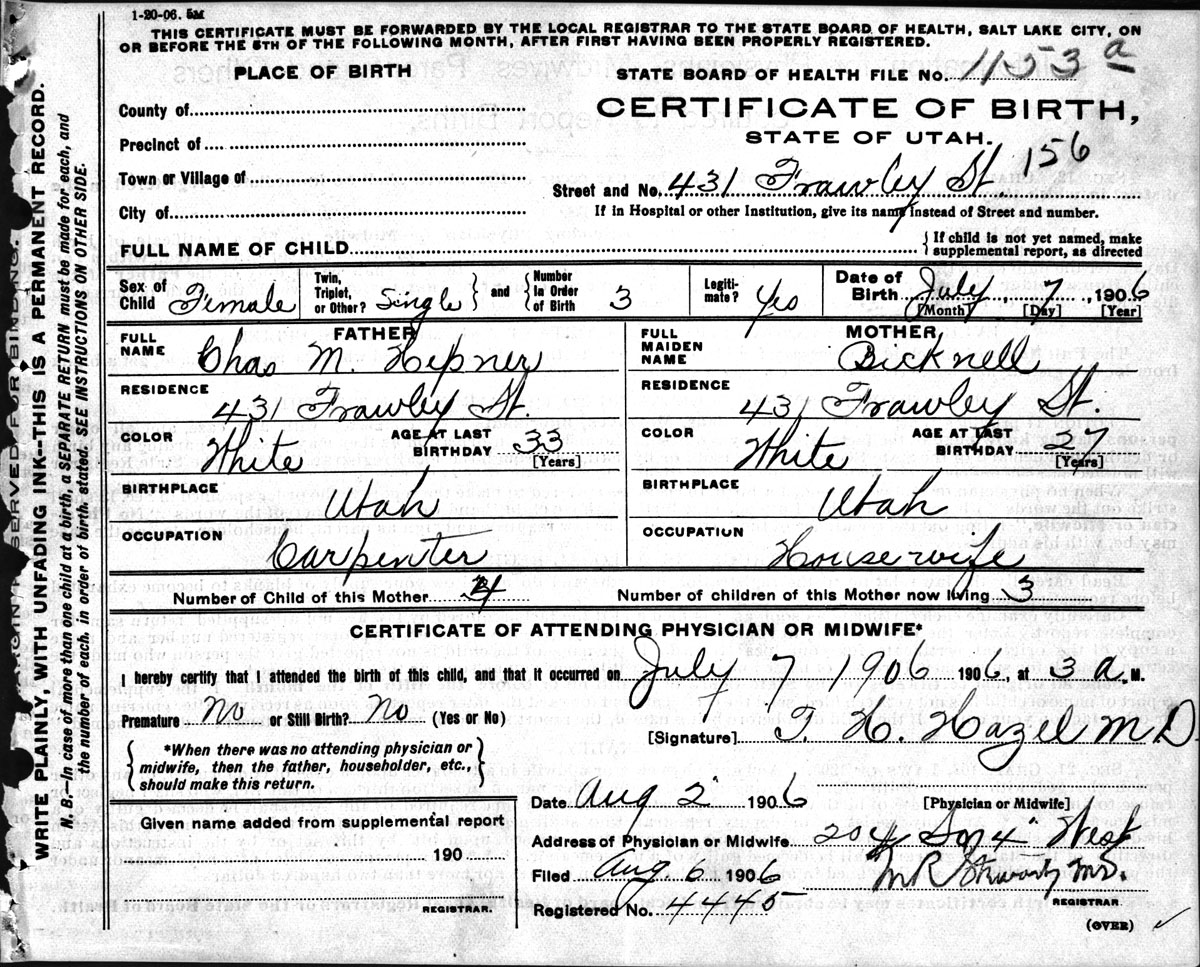 1-20-06. 5M
THIS CERTIFICATE MUST BE FORWARDED BY THE LOCAL REGISTRAR TO THE STATE BOARD OF HEALTH, SALT LAKE CITY, ON
OR BEFORE THE 5TH OF THE FOLLOWING MONTH, AFTER FIRST HAVING BEEN PROPERLY REGISTERED.
PLACE OF BIRTH
STATE BOARD OF HEALTH FILE NO. 1153 a
County of
CERTIFICATE OF BIRTH,
Precinct of
STATE OF UTAH.
156
Town or Village of
Street and No. 431 Frawley St.
City of
If in Hospital or other Institution, give its name instead of Street and number.
FULL NAME OF CHILD
{If child is not yet named, make
supplemental report, as directed
Sex of Child Female
Twin, Triplet, or Other? Single } and { Number in Order of Birth 3
Legitimate? Yes
Date of Birth July 7, 1906
[Month] [Day] [Year]
FATHER
FULL NAME Chas M. Hepner
MOTHER
FULL MAIDEN NAME Bicknell
RESIDENCE 431 Frawley St.
RESIDENCE 431 Frawley St.
COLOR White AGE AT LAST BIRTHDAY 33 [Years]
COLOR White AGE AT LAST BIRTHDAY 27 [Years]
BIRTHPLACE Utah
BIRTHPLACE Utah
OCCUPATION Carpenter
OCCUPATION Housewife
Number of Child of this Mother 4 Number of children of this Mother now living 3
CERTIFICATE OF ATTENDING PHYSICIAN OR MIDWIFE*
I hereby certify that I attended the birth of this child, and that it occurred on July 7 1906 1906, at 3 a. M.
Premature No or Still Birth? No (Yes or No)
[Signature] T. H. Hazel M D.
{*When there was no attending physician or
midwife, then the father, householder, etc.,
should make this return.}
Date Aug 2 1906 [Physician or Midwife]
Given name added from supplemental report
Address of Physician or Midwife 204 So 4" West
190
Filed Aug. 6, 1906
REGISTRAR.
REGISTRAR.
Registered No. 4445
(OVER)
WRITE PLAINLY, WITH UNFADING INK--THIS IS A PERMANENT RECORD.
N. B.--In case of more than one child at a birth, a SEPARATE RETURN must be made for each, and
the number of each, in order of birth, stated. SEE INSTRUCTIONS ON OTHER SIDE.